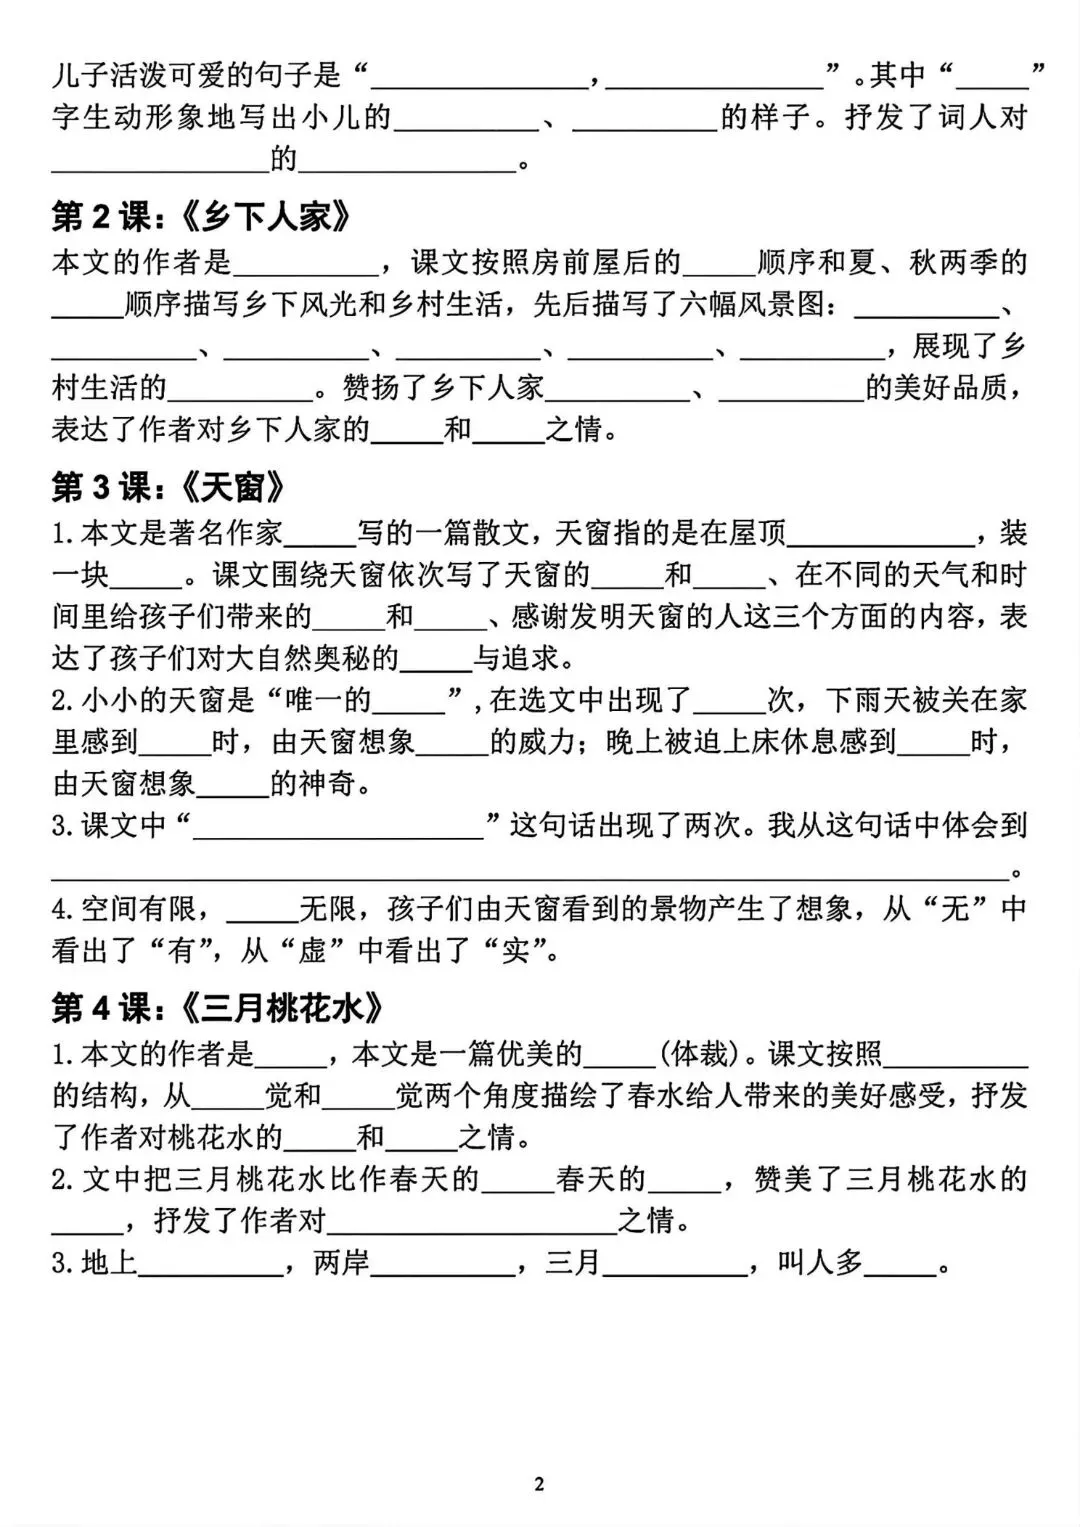 儿子活泼可爱的句子是“_______________，_______________”。其中“_____”
字生动形象地写出小儿的__________、__________的样子。抒发了词人对
_______________的_______________。
第 2 课：《乡下人家》
本文的作者是__________，课文按照房前屋后的_____顺序和夏、秋两季的
_____顺序描写乡下风光和乡村生活，先后描写了六幅风景图：__________、
__________、__________、__________、__________、__________，展现了乡
村生活的__________。赞扬了乡下人家__________、__________的美好品质，
表达了作者对乡下人家的_____和_____之情。
第 3 课：《天窗》
1.本文是著名作家_____写的一篇散文，天窗指的是在屋顶_____________，装
一块_____。课文围绕天窗依次写了天窗的_____和_____、在不同的天气和时
间里给孩子们带来的_____和_____、感谢发明天窗的人这三个方面的内容，表
达了孩子们对大自然奥秘的_____与追求。
2.小小的天窗是“唯一的_____”,在选文中出现了_____次，下雨天被关在家
里感到_____时，由天窗想象_____的威力；晚上被迫上床休息感到_____时，
由天窗想象_____的神奇。
3.课文中“____________________”这句话出现了两次。我从这句话中体会到
__________________________________________________________________。
4.空间有限，_____无限，孩子们由天窗看到的景物产生了想象，从“无”中
看出了“有”，从“虚”中看出了“实”。
第 4 课：《三月桃花水》
1.本文的作者是_____，本文是一篇优美的_____(体裁)。课文按照__________
的结构，从_____觉和_____觉两个角度描绘了春水给人带来的美好感受，抒发
了作者对桃花水的_____和_____之情。
2.文中把三月桃花水比作春天的_____春天的_____，赞美了三月桃花水的
_____，抒发了作者对____________________之情。
3.地上__________，两岸__________，三月__________，叫人多_____。
2